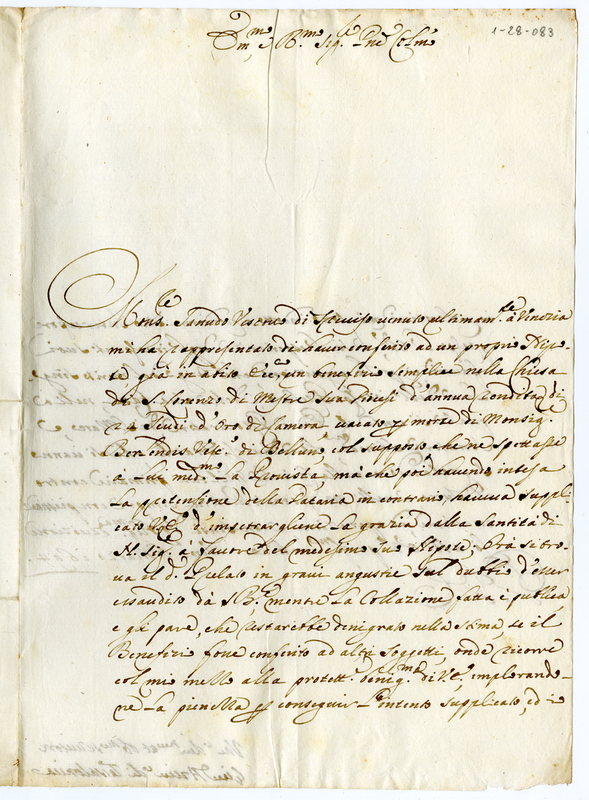 1-28-083
Em.mo e R.mo Sig.re Pne Colmo
Mons.re Sanudo Vescovo di Treviso venuto ultimam.te à Venezia
mi ha rappresentato di haver conferito ad un proprio Nipo-
te già in abito un benefizio semplice nella Chiesa
di S. Lorenzo di Mestre sua Diocesi d'annua rendita di
24 scudi d'oro di Camera vacato p morte di Monsig.r
Berlendis Vesc.o di Belluno col supposto che ne spettasse
à lui med.mo la Provista, mà che poi avendo intesa
la pretensione della Dataria in contrario, haveva suppli-
cato V.E. d'impetrargliene la grazia dalla Santità di
N. Sig.re à favore del medesimo suo Nipote; Ora si tro-
va el d.o Prelato in gravi angustie sul dubbio d'esser
essaudito dà S. B. mentre la Collazione fatta è publica,
e gli pare, che restarebbe denigrato nella stima, se il
Benefizio fosse conferito ad altri soggetti, onde ricorre
col mio mezzo alla protett.e benig.ma di V.E. implorando-
ne la pienezza p conseguir l'intento supplicato, ed io